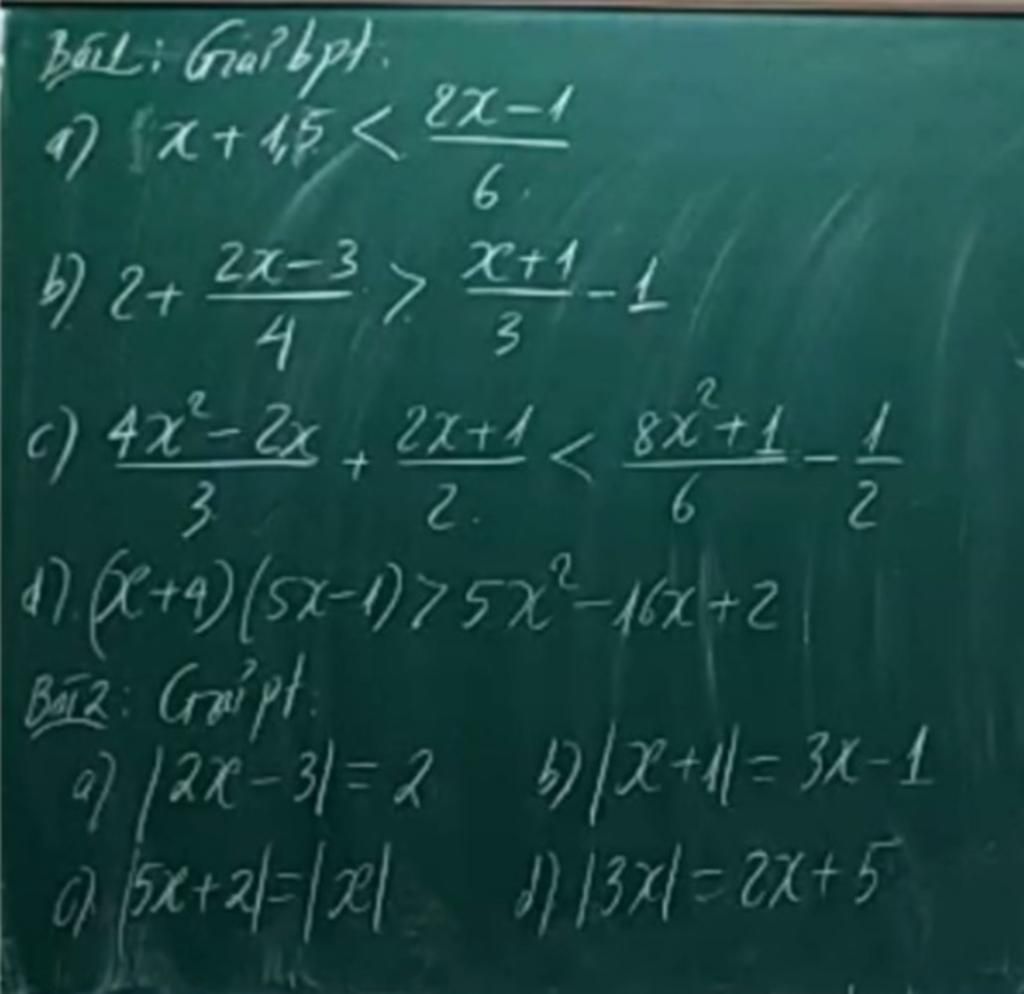 Bài 1: Giải bpt:
a) x + 1,5 < \frac{2x-1}{6}
b) 2 + \frac{2x-3}{4} > \frac{x+1}{3} - 1
c) \frac{4x² - 2x}{3} + \frac{2x+1}{2} < \frac{8x² + 1}{6} - \frac{1}{2}
d) (x+4)(5x-1) > 5x² - 16x + 2
Bài 2: Giải pt:
a) |2x - 3| = 2 b) |x + 1| = 3x - 1
c) |5x + 2| = |x| d) |3x| = 2x + 5